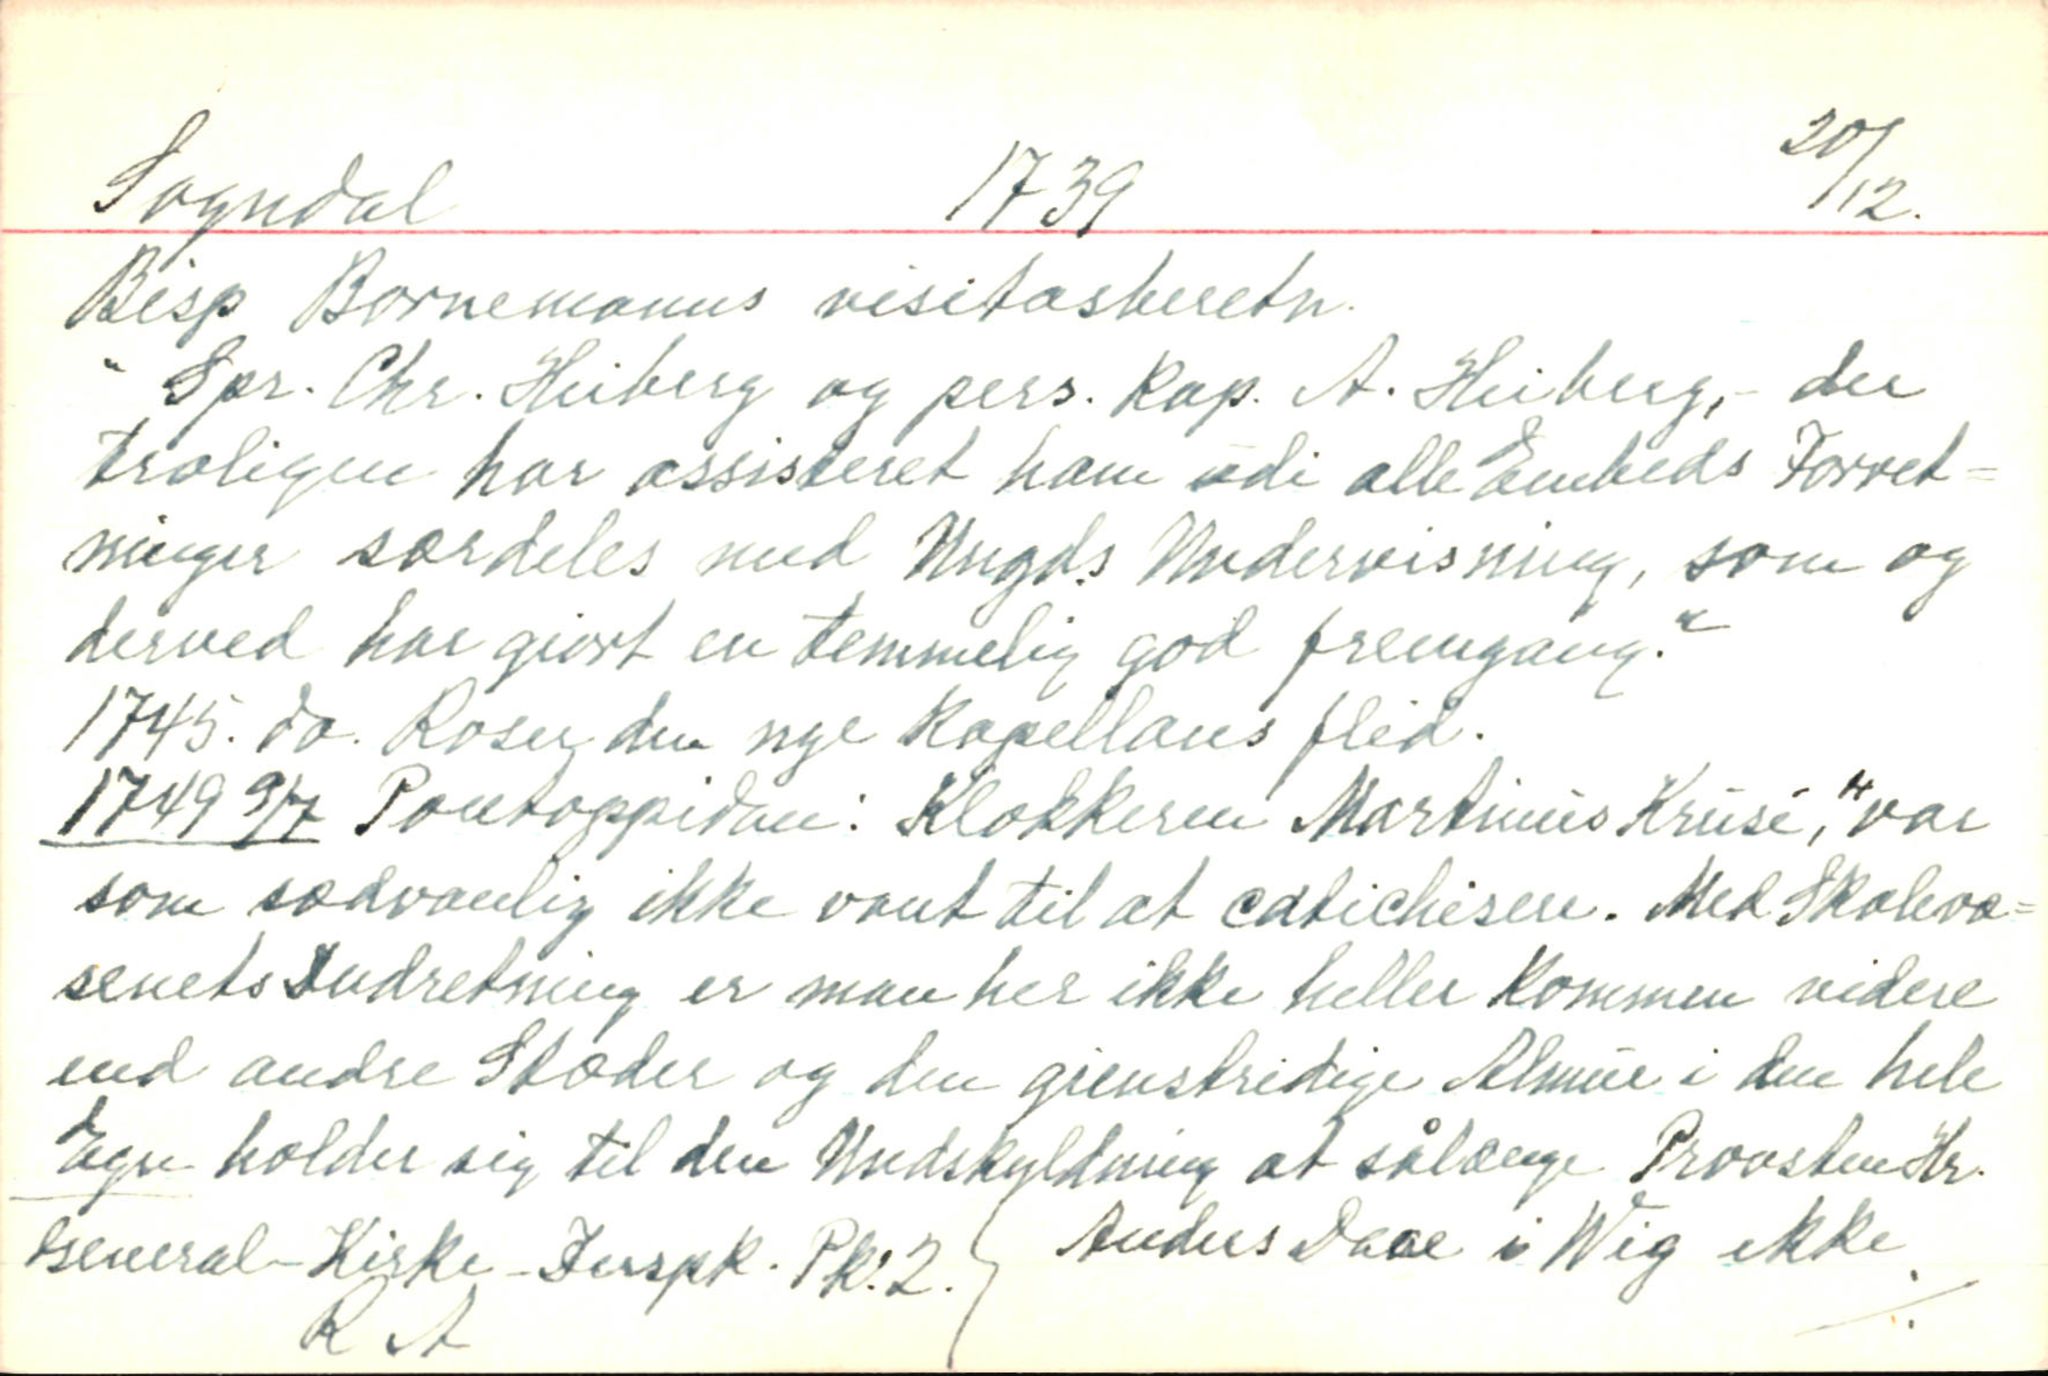 Sogndal 1739 20/12.
Bisp Bornemanns visitasberetn.
"Spr. Chr. Heiberg og pers. Kap. A. Heiberg, - der
troligen har assisteret ham udi alle Embeds Forret=
ninger særdeles med Ungds Undervisning, som og
derved har giort en temmelig god fremgang."
1745. do. Roser den nye Kapellans flid.
1749 9/7 Pontoppidan: Klokkeren Martinus Kruse, "var
som sædvanlig ikke vant til at catichisere. Med Skolevæ=
senets Indretning er man her ikke heller kommen videre
end andre Stæder og den gienstridige Almue i den hele
Egn holder sig til den Undskyldning at sålænge Provsten Hr.
Anders Daae i Wig ikke ./.
General-Kirke-Inspk. Pk. 2.
R A